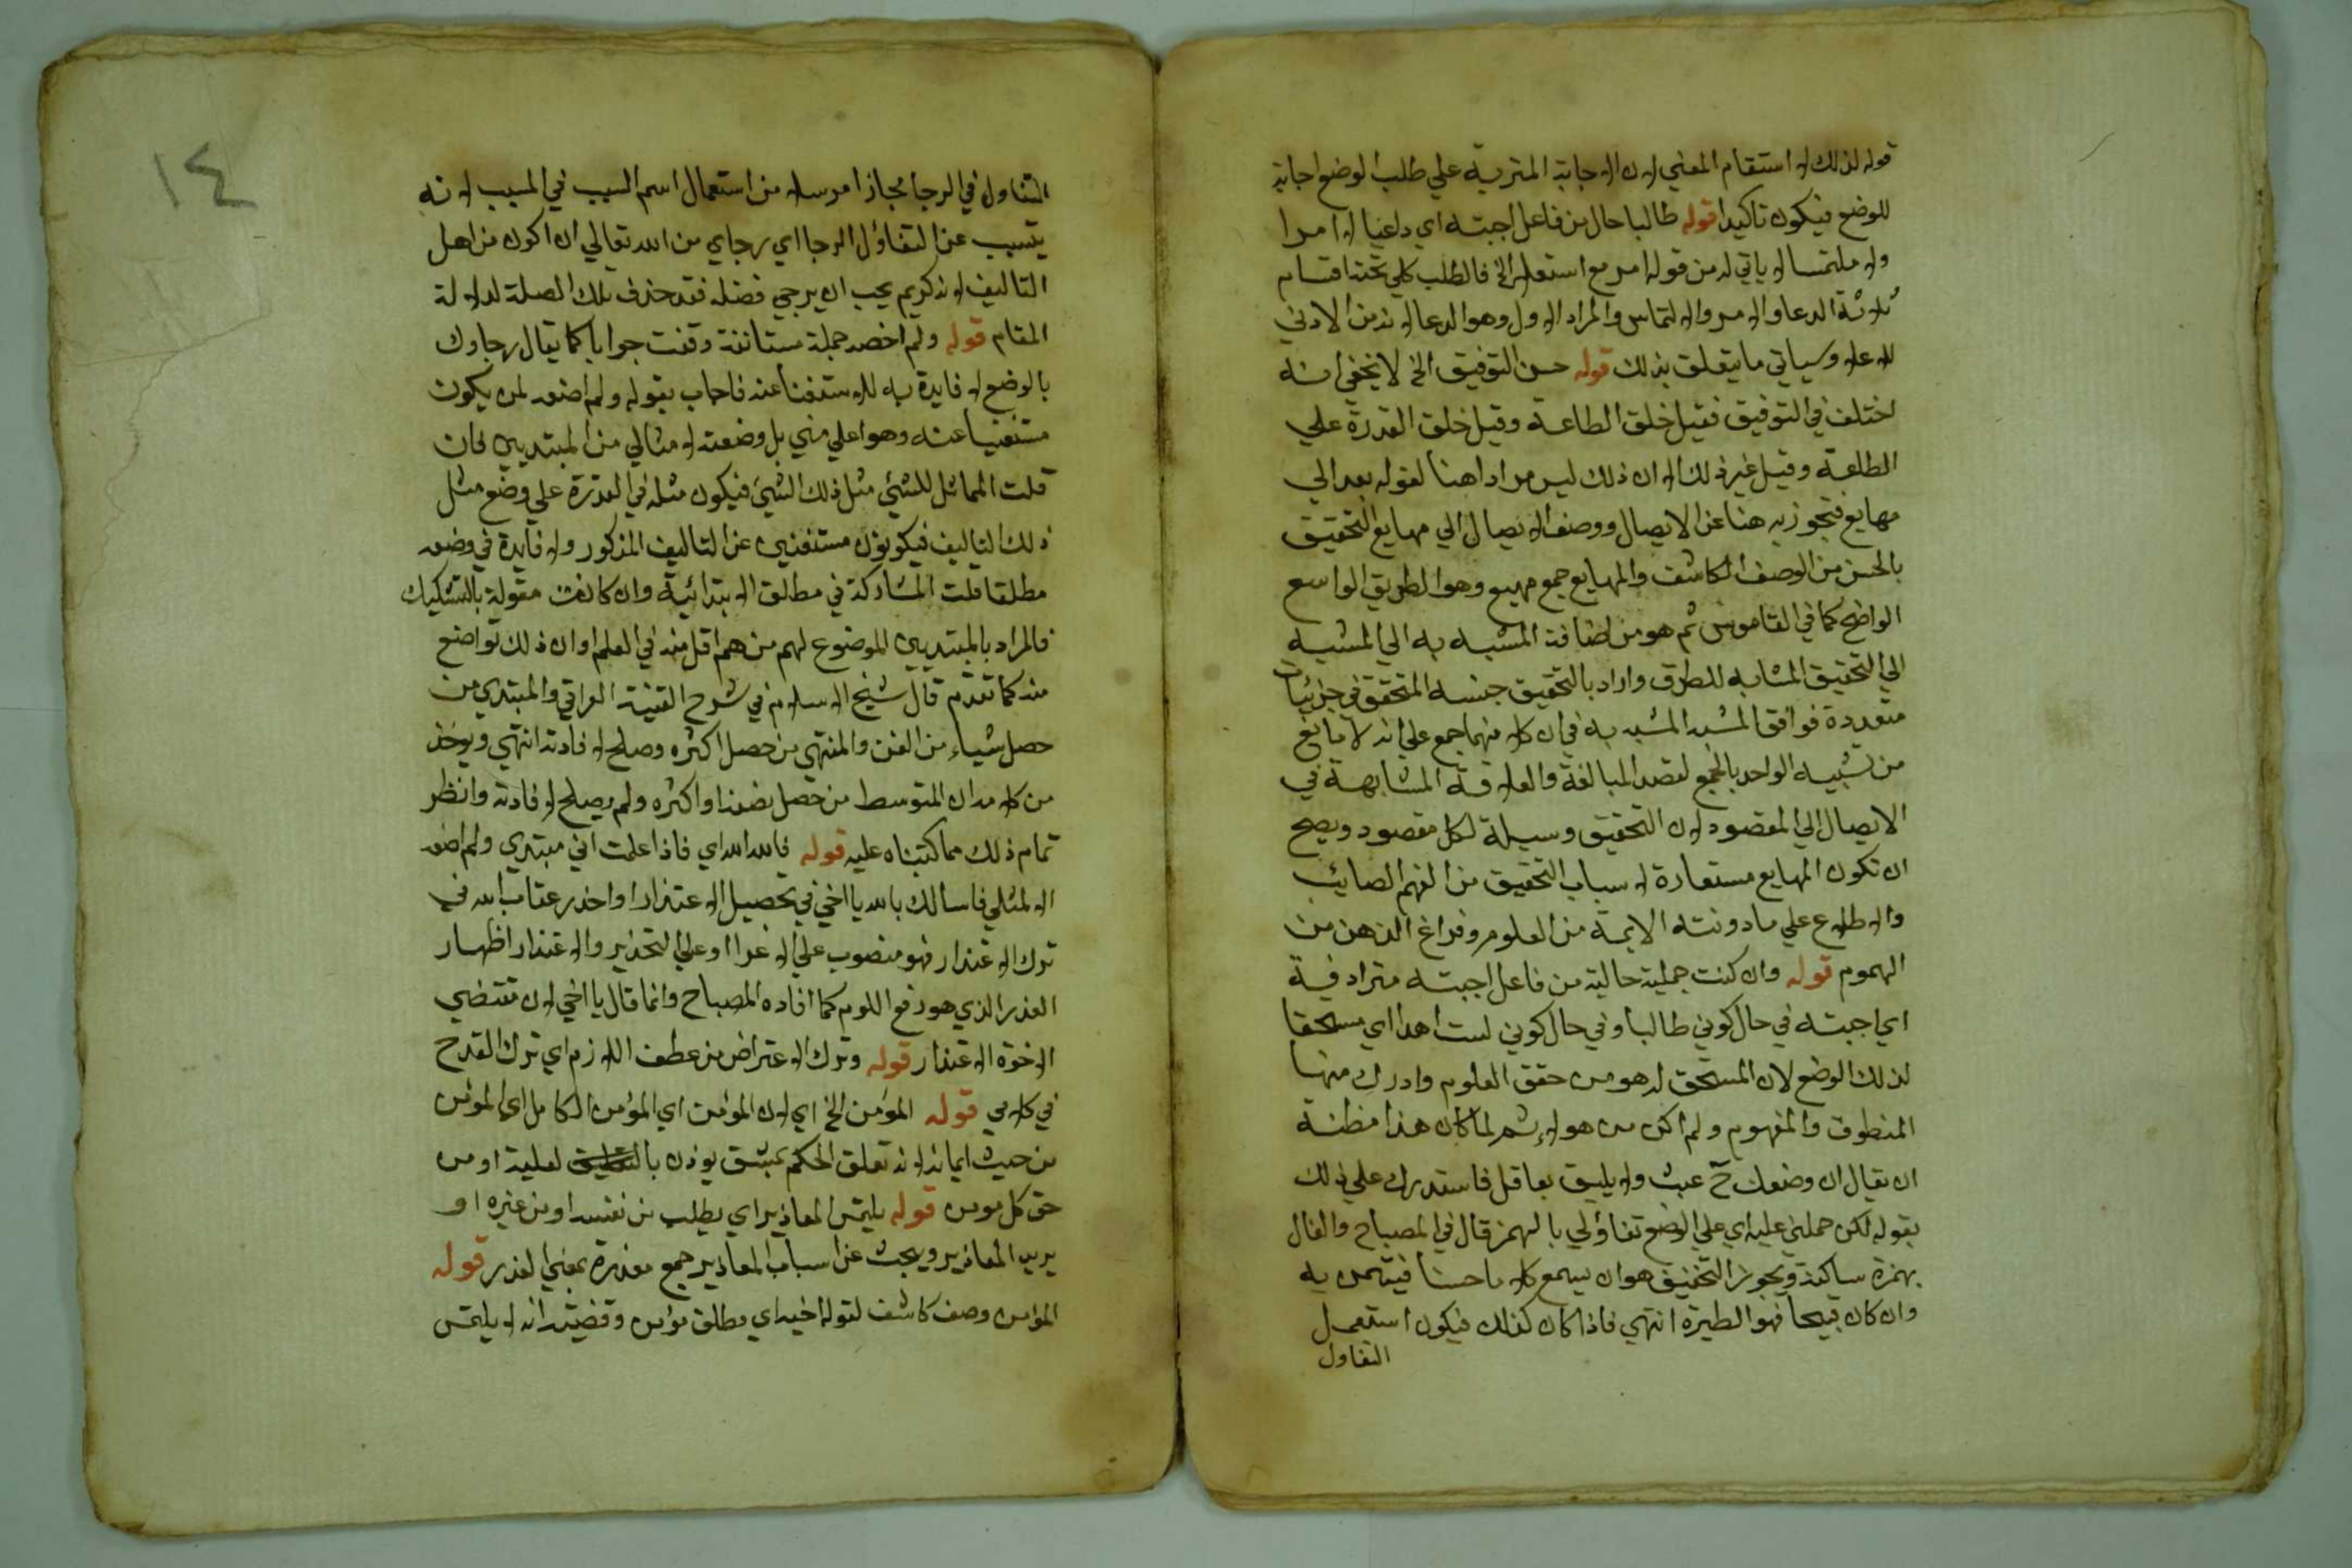 قوله لذلك لا استقام المعني لان الاجابة المترتبة علي طلب الوضع اجابة
للوضع فيكون تاكيدا قوله طالبا حال من فاعل اجبته اي داعيا لا امرا
ولا ملتمسا لا ياتي له من قوله امر مع استعلا الخ فالطلب كلي تحته اقسام
ثلاثة الدعا والامر والالتماس والمراد الاول وهو الدعا لانه من الادني
للاعلا وسياتي ما يتعلق بذلك قوله حسن التوفيق الخ لا يخفي انه
اختلف في التوفيق فقيل خلق الطاعة وقيل خلق القدرة علي
الطاعة وقيل غير ذلك الا ان ذلك ليس مرادا هنا لقوله بعد الي
مهايع فتجوز به هنا عن الايصال ووصف الايصال الي مهايع التحقيق
بالحسن من الوصف الكاشف والمهايع جمع مهيع وهو الطريق الواسع
الواضح كما في القاموس ثم هو من اضافة المشبه به الي المشبه
الي التحقيق المشابه للطرق واراد بالتحقيق جنسه المتحقق في جزئيات
متعددة فوافق المشبه المشبه به في ان كلا منهما جمع علي انه لا مانع
من تشبيه الواحد بالجمع لقصد المبالغة والعلاقة المشابهة في
الايصال الي المقصود لان التحقيق وسيلة لكل مقصود ويصح
ان تكون المهايع مستعارة لاسباب التحقيق من الفهم الصايب
والاطلاع علي ما دونته الايمة من العلوم وفراغ الذهن من
الهموم قوله وان كنت جملية حالية من فاعل اجبته مترادفة
اي اجبته في حال كوني طالبا وفي حال كوني لست اهلا اي مستحقا
لذلك الوضع لان المستحق له هو من حقق العلوم وادرك منها
المنطوق والمفهوم ولم اكن من هولاء ثم لما كان هذا مظنة
ان يقال ان وضعك ح عبث ولا يليق بعاقل فاستدرك علي ذلك
بقوله لكن حملني عليه اي علي الوضع تفاؤلي بالهمز قال في المصباح والفال
بهمزة ساكنة ويجوز التخفيف هو ان يسمع كلاما حسنا فيتيمن به
وان كان قبيحا فهو الطيرة انتهي فاذا كان كذلك فيكون استعمل
التفاول
١٤
التفاول في الرجا مجازا مرسلا من استعمال اسم السبب في المسبب لانه
يتسبب عن التفاؤل الرجا اي رجاي من الله تعالي ان اكون من اهل
التاليف لانه كريم يحب ان يرجي فضله فقد حذف تلك الصلة لدلالة
المقام قوله ولم اضعه جملة مستانفة وقعت جوابا كما يقال رجاوك
بالوضع لا فايدة به للاستغنا عنه فاجاب بقوله ولم اضعه لمن يكون
مستغنيا عنه وهو اعلي مني بل وضعته لامثالي من المبتديين فان
قلت المماثل للشئ مثل ذلك الشئ فيكون مثله في القدرة علي وضع مثل
ذلك التاليف فيكونون مستغنين عن التاليف المذكور ولا فايدة في وضعه
مطلقا قلت المشاركة في مطلق الابتدائية وان كانت مقولة بالتشكيك
فالمراد بالمبتديين الموضوع لهم من هم اقل منه في العلم او ان ذلك تواضع
منه كما تقدم قال شيخ الاسلام في شرح الفية العراقي والمبتدي من
حصل شياء من الفن والمنتهي من حصل اكثره وصلح لافادته انتهي ويوخذ
من كلامه ان المتوسط من حصل نصفه او اكثره ولم يصلح لافادته وانظر
تمام ذلك مما كتبناه عليه قوله فالله الله اي فاذا علمت اني مبتدي ولم اضعه
الا لمثلي فاسالك بالله يا اخي في تحصيل الاعتذار او احذر عقاب الله في
ترك الاعتذار فهو منصوب علي الاغرا او علي التحذير والاعتذار اظهار
العذر الذي هو دفع اللوم كما افاده المصباح وانما قال يا اخي لان مقتضي
الاخوة الاعتذار قوله وترك الاعتراض من عطف اللازم اي ترك القدح
في كلامي قوله المؤمن الخ اي لان المؤمن اي المؤمن الكامل اي المؤمن
من حيث ايمانه لانه تعلق الحكم بمشتق يوذن بالعلية او من
حق كل مومن قوله يلتمس المعاذير اي يطلب من نفسه او من غيره او
يريد المعاذير ويبحث عن اسباب المعاذير جمع معذرة بمعني العذر قوله
المؤمن وصف كاشف لقوله اخيه اي مطلق مؤمن وقضيته انه لا يلتمس